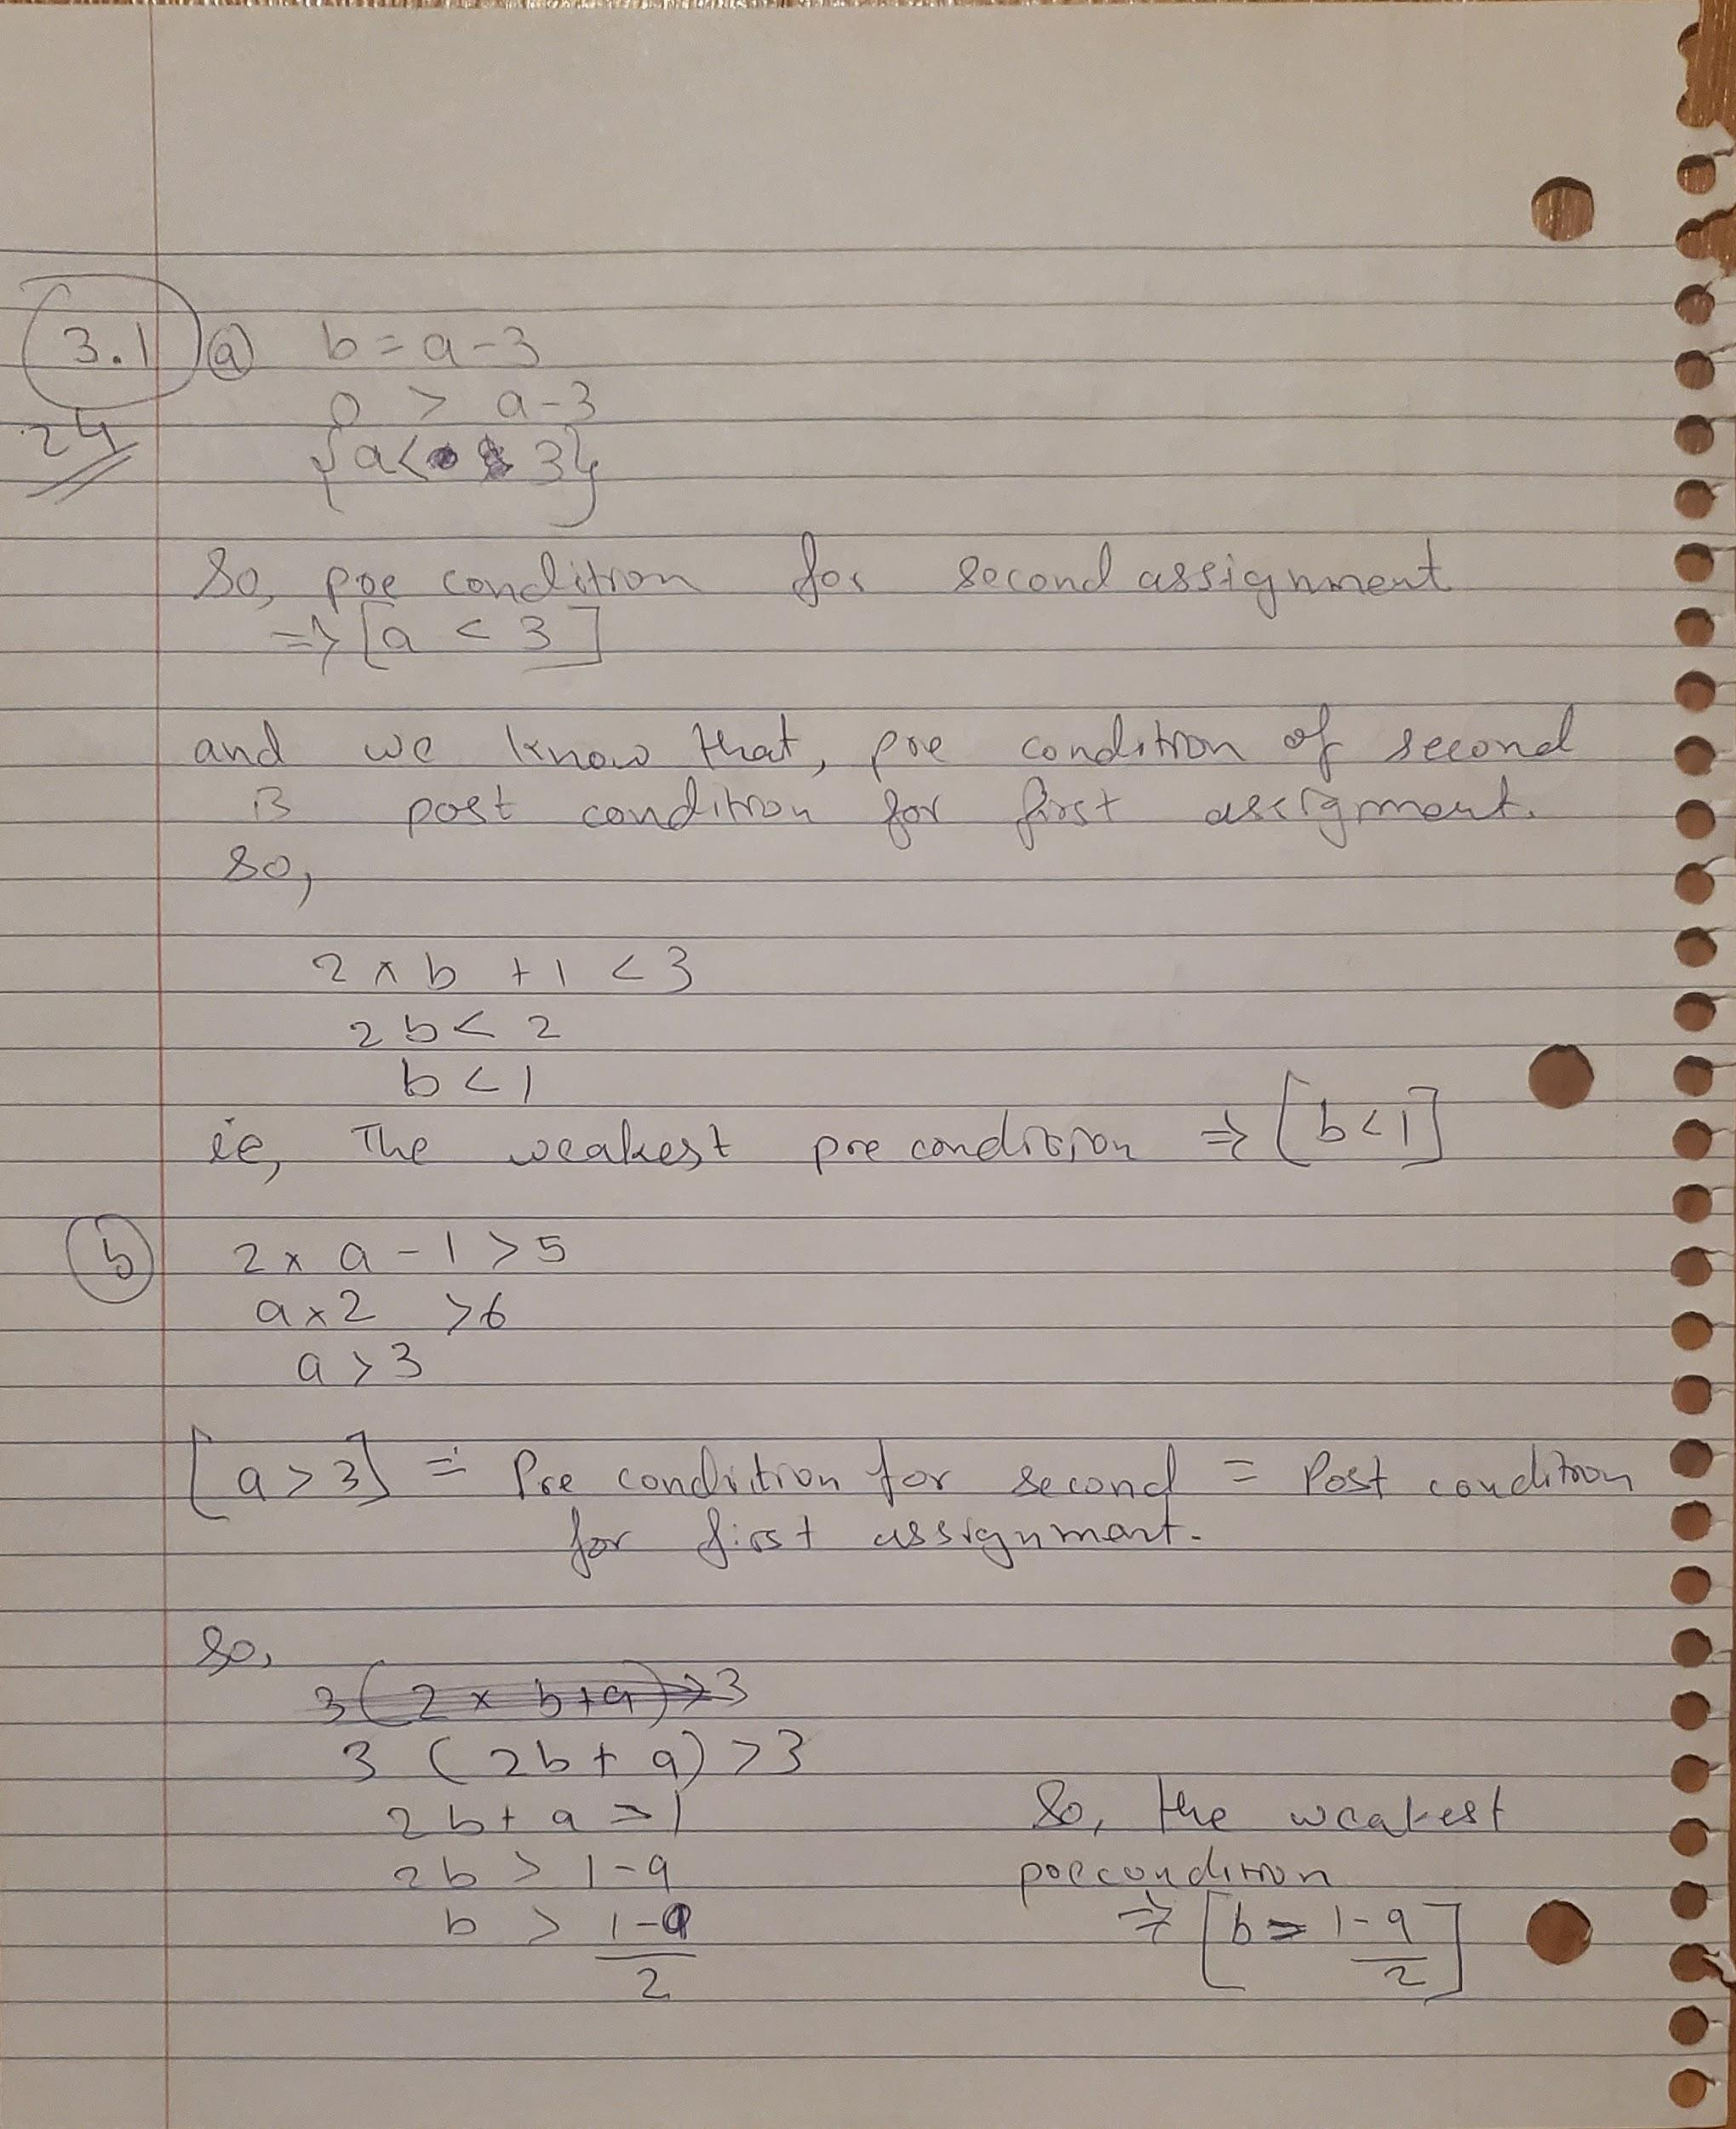 3.1 a b = a - 3
24 0 > a - 3
{a < 3}
So, pre condition for second assignment
=> [a < 3]
and we know that, pre condition of second
is post condition for first assignment.
so,
2 × b + 1 < 3
2b < 2
b < 1
ie, The weakest pre condition => [b < 1]
b 2 × a - 1 > 5
a × 2 > 6
a > 3
[a > 3] = Pre condition for second = Post condition
for first assignment.
So,
3 (2 × b + a) > 3
3 (2b + a) > 3
2b + a > 1 So, the weakest
2b > 1 - a precondition
b > 1 - a / 2 => [b > 1 - a / 2]